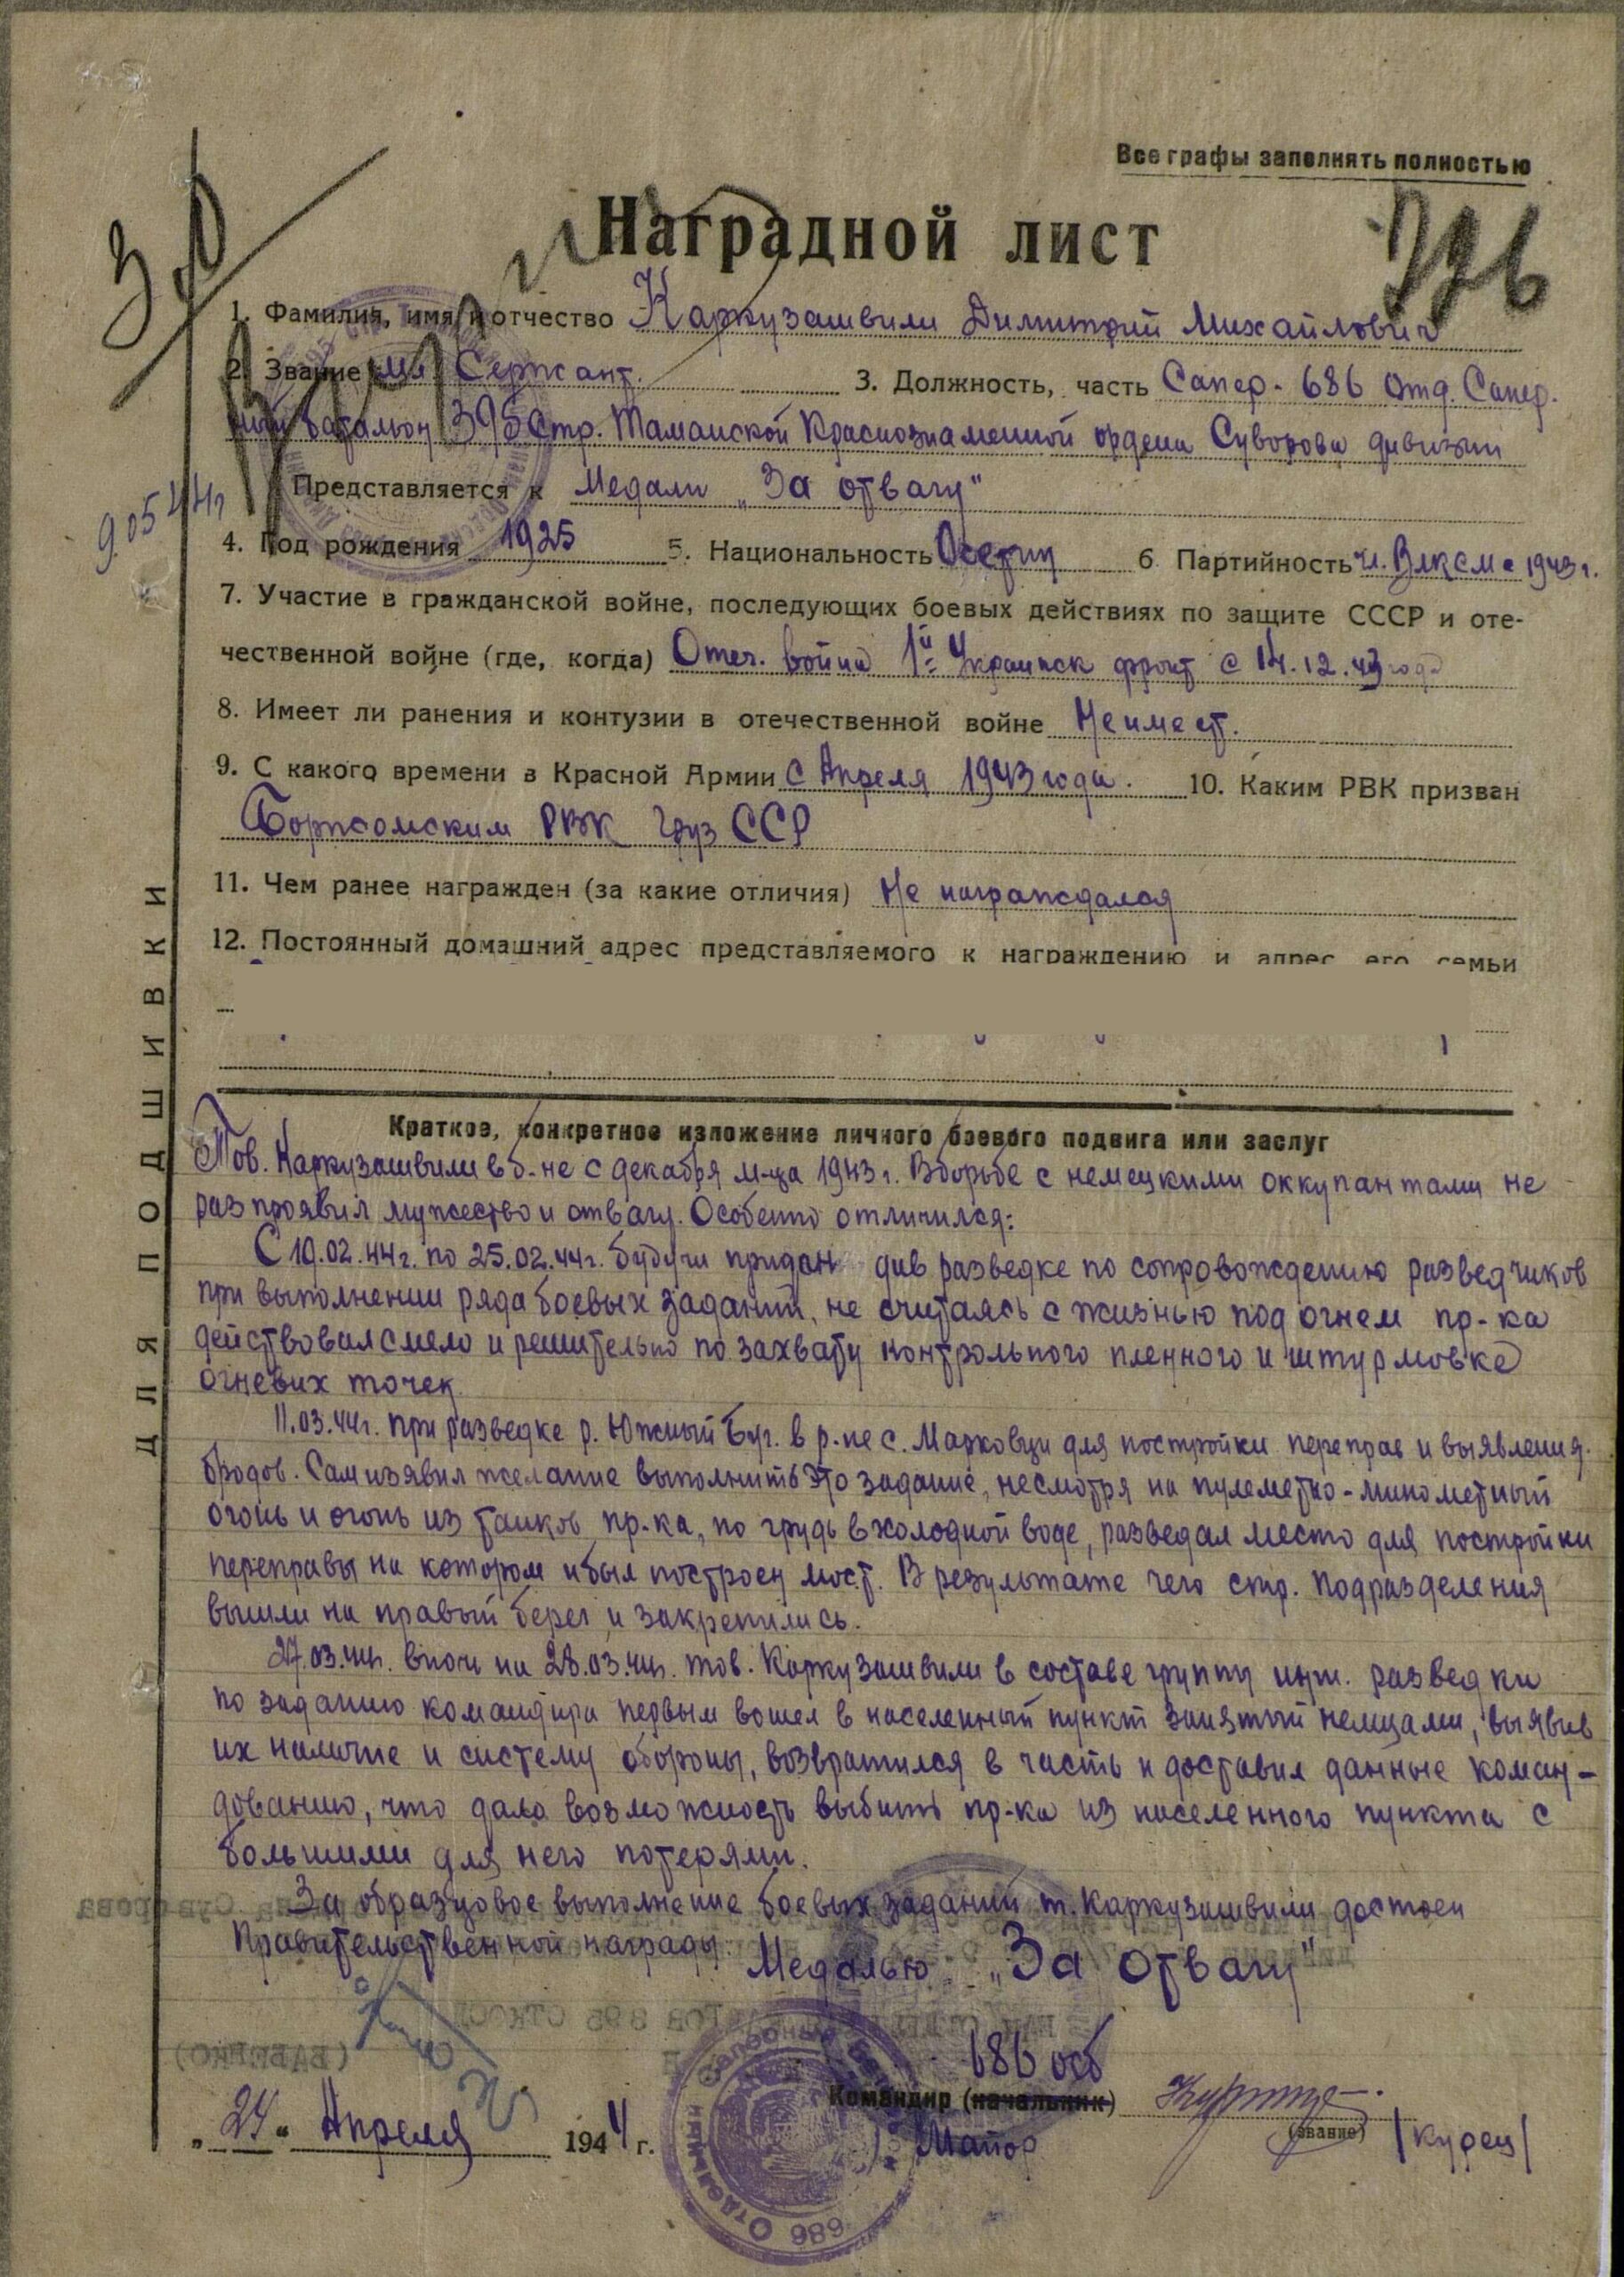 Все графы заполнять полностью
Наградной лист
1. Фамилия, имя и отчество Каркузашвили Димитрий Михайлович
2. Звание мл. Сержант. 3. Должность, часть Сапер - 686 отд. Сапер.
ный батальон 395 Стр. Таманской Краснознаменной ордена Суворова дивизии
Представляется к Медали „За отвагу"
9.05 44г
4. Год рождения 1925 5. Национальность Осетин 6 Партийность чл. ВЛКСМ с 1943 г.
7. Участие в гражданской войне, последующих боевых действиях по защите СССР и оте-
чественной войне (где, когда) Отеч. война 1й Украинск фронт с 14.12.43 года
8. Имеет ли ранения и контузии в отечественной войне Не имеет.
9. С какого времени в Красной Армии С Апреля 1943 года. 10. Каким РВК призван
Боржомским РВК Груз ССР
11. Чем ранее награжден (за какие отличия) Не награждался
12. Постоянный домашний адрес представляемого к награждению и адрес его семьи
ДЛЯ ПОДШИВКИ
Краткое, конкретное изложение личного боевого подвига или заслуг
Тов. Каркузашвили в б-не с декабря м-ца 1943 г. В борьбе с немецкими оккупантами не
раз проявил мужество и отвагу. Особенно отличился:
С 10.02.44г. по 25.02.44г. будучи придан див разведке по сопровождению разведчиков
при выполнении ряда боевых заданий, не считаясь с жизнью под огнем пр-ка
действовал смело и решительно по захвату контрольного пленного и штурмовке
огневих точек
11.03.44г. при разведке р. Южный Буг. в р-не с. Марковци для постройки переправ и выявления
бродов. Сам изявил желание выполнить это задание, несмотря на пулеметно-минометный
огонь и огонь из танков пр-ка, по грудь в холодной воде, разведал место для постройки
переправы на котором и был построен мост. В результате чего стр. подразделения
вышли на правый берег и закрепились.
27.03.44г. в ночь на 28.03.44г. тов. Каркузашвили в составе группы инж. разведки
по заданию командира первым вошел в населенный пункт занятый немцами, выявив
их наличие и систему обороны, возвратился в часть и доставил данные коман-
дованию, что дало возможность выбить пр-ка из населенного пункта с
большими для него потерями.
За образцовое выполнение боевых заданий т. Каркузашвили достоен
Правительственной награды. Медалью „За отвагу"
686 осб
Командир (начальник)
(звание)
Майор /Курец/
„24" Апреля 1944 г.
686 Отдельный Саперный